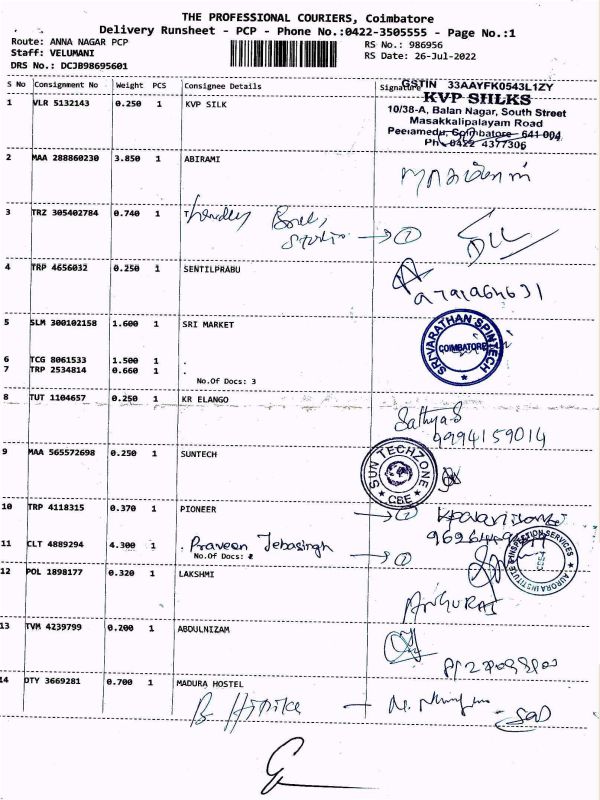 THE PROFESSIONAL COURIERS, Coimbatore
Delivery Runsheet - PCP - Phone No.:0422-3505555 - Page No.:1
Route: ANNA NAGAR PCP
Staff: VELUMANI
DRS No.: DCJB98695601
RS No.: 986956
RS Date: 26-Jul-2022
S No Consignment No Weight PCS Consignee Details Signature
GSTIN 33AAYFK0543L1ZY
KVP SILKS
10/38-A, Balan Nagar, South Street
Masakkalipalayam Road
Peelamedu, Coimbatore - 641 004
Ph : 0422 4377306
1 VLR 5132143 0.250 1 KVP SILK
2 MAA 288860230 3.850 1 ABIRAMI
3 TRZ 305402784 0.740 1
4 TRP 4656032 0.250 1 SENTILPRABU
5 SLM 300102158 1.600 1 SRI MARKET
SRIVARATHAN SPINTECH
COIMBATORE
6 TCG 8061533 1.500 1 .
7 TRP 2534814 0.660 1 .
No.Of Docs: 3
8 TUT 1104657 0.250 1 KR ELANGO
Sathya.S
9994159014
9 MAA 565572698 0.250 1 SUNTECH
SUN TECHZONE
CBE
10 TRP 4118315 0.370 1 PIONEER
11 CLT 4889294 4.300 1 . Praveen Jebasingh
No.Of Docs: 2
AURORA INSTITUTE INSPECTION SERVICES
12 POL 1898177 0.320 1 LAKSHMI
ANGURAJ
13 TVM 4239799 0.200 1 ABDULNIZAM
14 DTY 3669281 0.700 1 MADURA HOSTEL